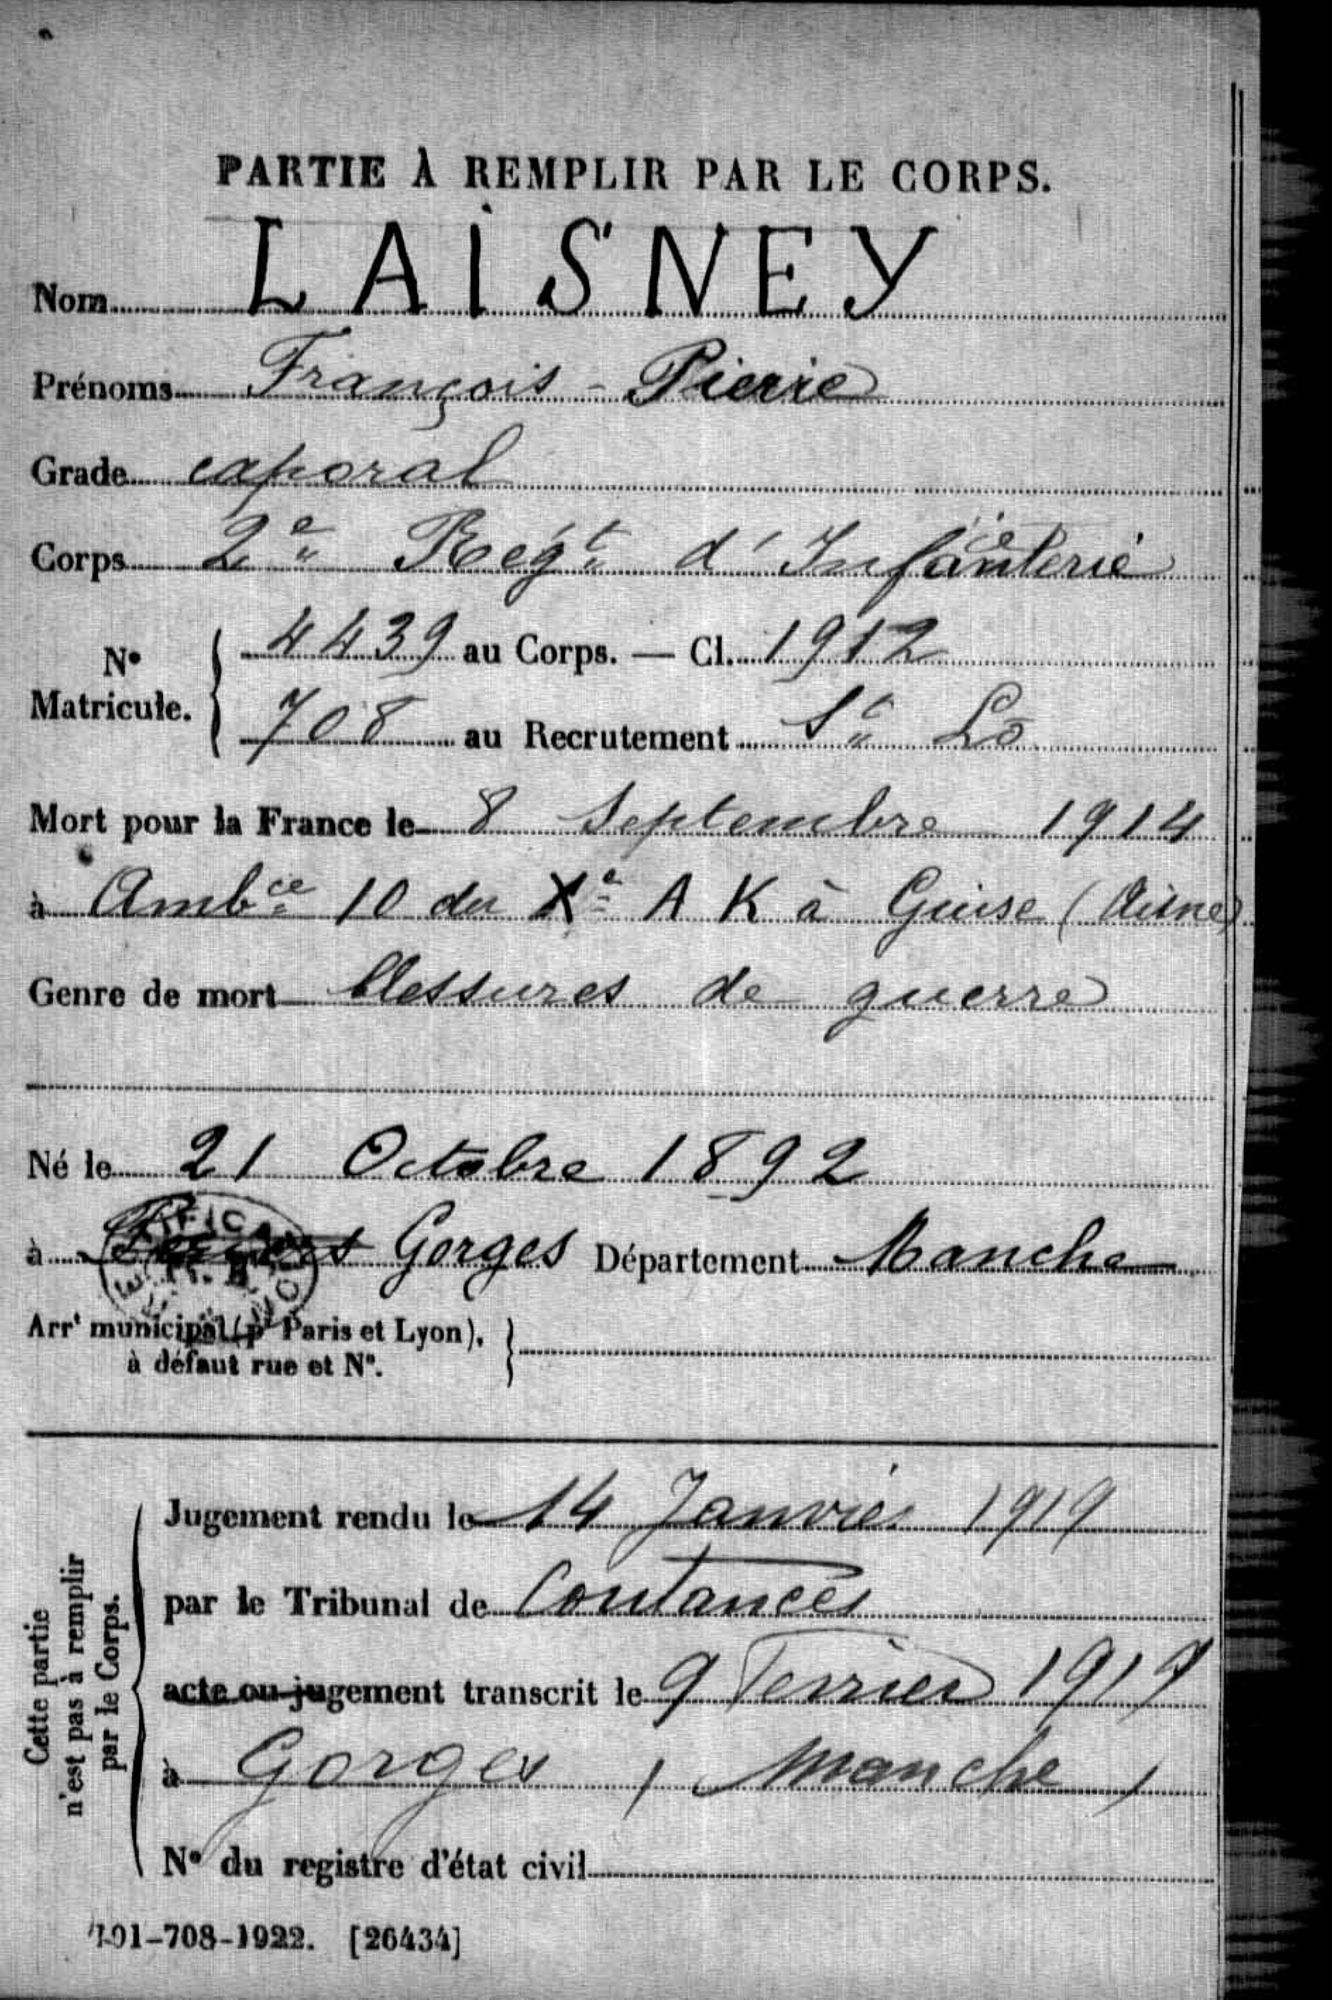 PARTIE À REMPLIR PAR LE CORPS.
Nom LAISNEY
Prénoms François - Pierre
Grade caporal
Corps 2e Régt d'Infanterie
No Matricule. { 4439 au Corps. — Cl. 1912
708 au Recrutement St Lô
Mort pour la France le 8 Septembre 1914
à Ambce 10 du Xe A K à Guise (Aisne)
Genre de mort blessures de guerre
Né le 21 Octobre 1892
à Gorges Département Manche
Arrt municipal (pr Paris et Lyon), }
à défaut rue et No.
Cette partie
n'est pas à remplir
par le Corps.
Jugement rendu le 14 Janvier 1919
par le Tribunal de Coutances
acte ou jugement transcrit le 9 Fevrier 1919
à Gorges, Manche,
No du registre d'état civil
101-708-1922. [26434]